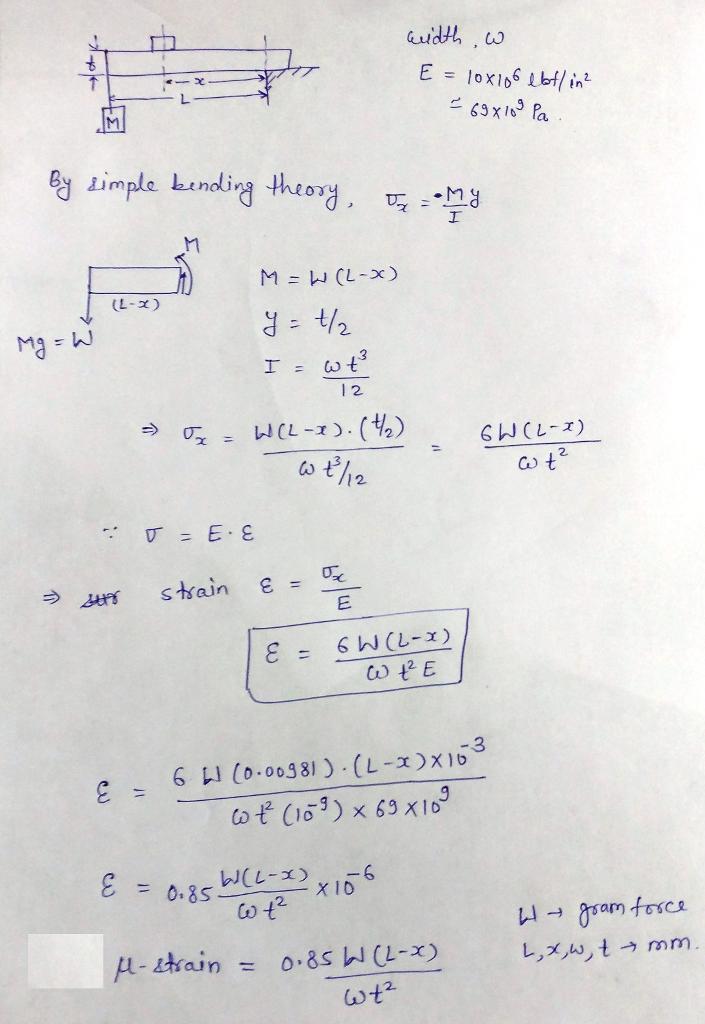 width, ω
t
x
L
M
E = 10x10⁶ lbf/in²
= 69x10⁹ Pa.
By simple bending theory, σₓ = My/I
M
(L-x)
Mg = W
M = W(L-x)
y = t/2
I = ωt³/12
⇒ σₓ = W(L-x).(t/2) / ωt³/12 = 6W(L-x) / ωt²
∵ σ = E·ε
⇒ strain ε = σₓ/E
ε = 6W(L-x) / ωt²E
ε = 6W(0.00981).(L-x)x10⁻³ / ωt²(10⁻⁹) x 69x10⁹
ε = 0.85 W(L-x)/ωt² x10⁻⁶
W → gram force
L,x,ω,t → mm.
μ-strain = 0.85 W(L-x) / ωt²